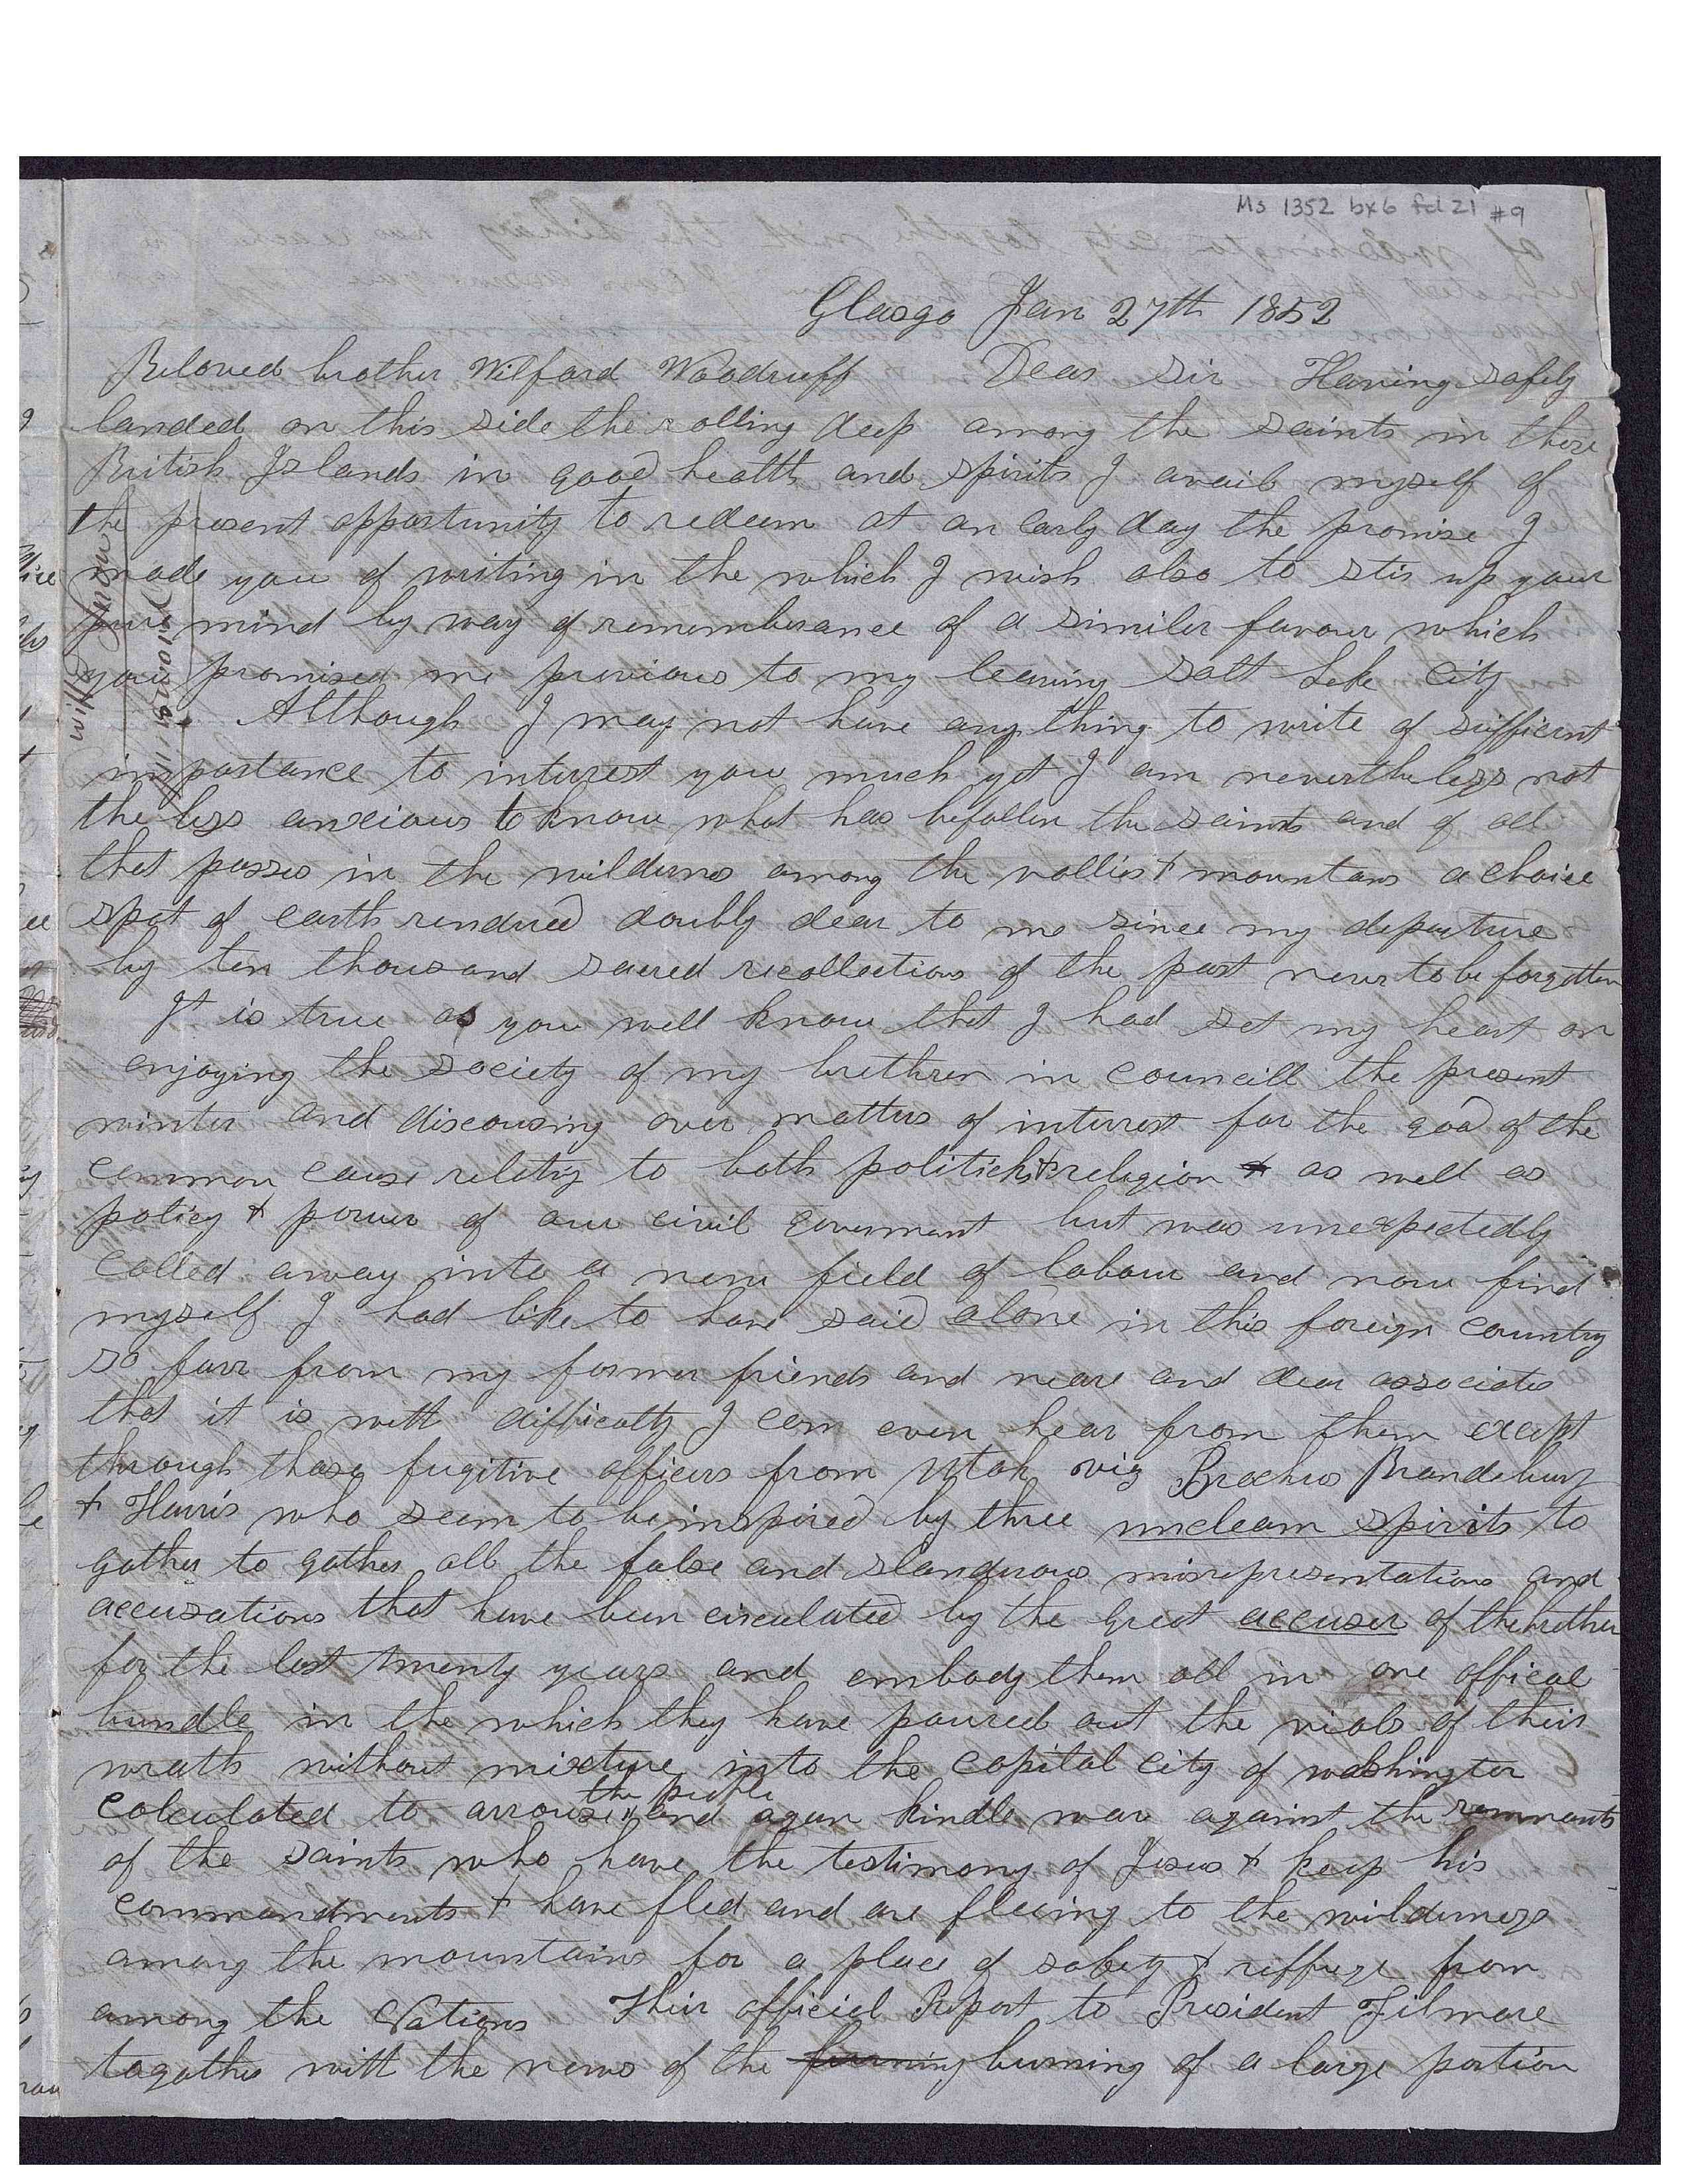 Ms 1352 bx6 fd 21 #9
Glasgo Jan 27th 1852
Beloved brother Wilford Woodruff Dear Sir Having safely
landed on this side the rolling deep among the saints in these
British Islands in good health and spirits I avail myself of
the present opportunity to redeem at an early day the promise I
made you of writing in the which I wish also to stir up your
pure mind by way of rememberance of a similer favour which
you promised me previous to my leaving Salt Lake City
Although I may not have any thing to write of sufficient
importance to interest you much yet I am nevertheless not
the less anxious to know what has befallen the saints and of all
that passes in the wilderness among the vallies & mountans a choice
spot of earth rendred doubly dear to me since my departure
by ten thousand sacred recollections of the past never to be forgotten
It is true as you well know that I had set my heart on
enjoying the society of my brethren in councill the present
winter and discousing over matters of interest for the good of the
common cause relatig to both politicks & religion & as well as
policy & power of our civil goverment but was unexpectedly
called away into a new field of labour and now find
myself I had like to have said alone in this foreign country
so farr from my former friends and neare and dear associates
that it is with difficulty I can even hear from them except
through those fugitive officers from Utah viz Brochus Brandebury
& Harris who seem to be inspired by three unclean spirits to
gather to gather all the false and slanderous misrepresentations and
accusations that have been circulated by the great accuser of the brethren
for the last twenty years and embody them all in one offical
bundle in the which they have poured out the viols of their
wrath without mixture into the capital city of washington
the people
calculated to arrouse and again kindle war against the remnants
of the saints who have the testimony of Jesus & keep his
commandments & have fled and are fleeing to the wilderness
among the mountains for a place of safety & reffuge from
among the Nations Their official Report to President Filmore
togather with the news of the furning burning of a large portion